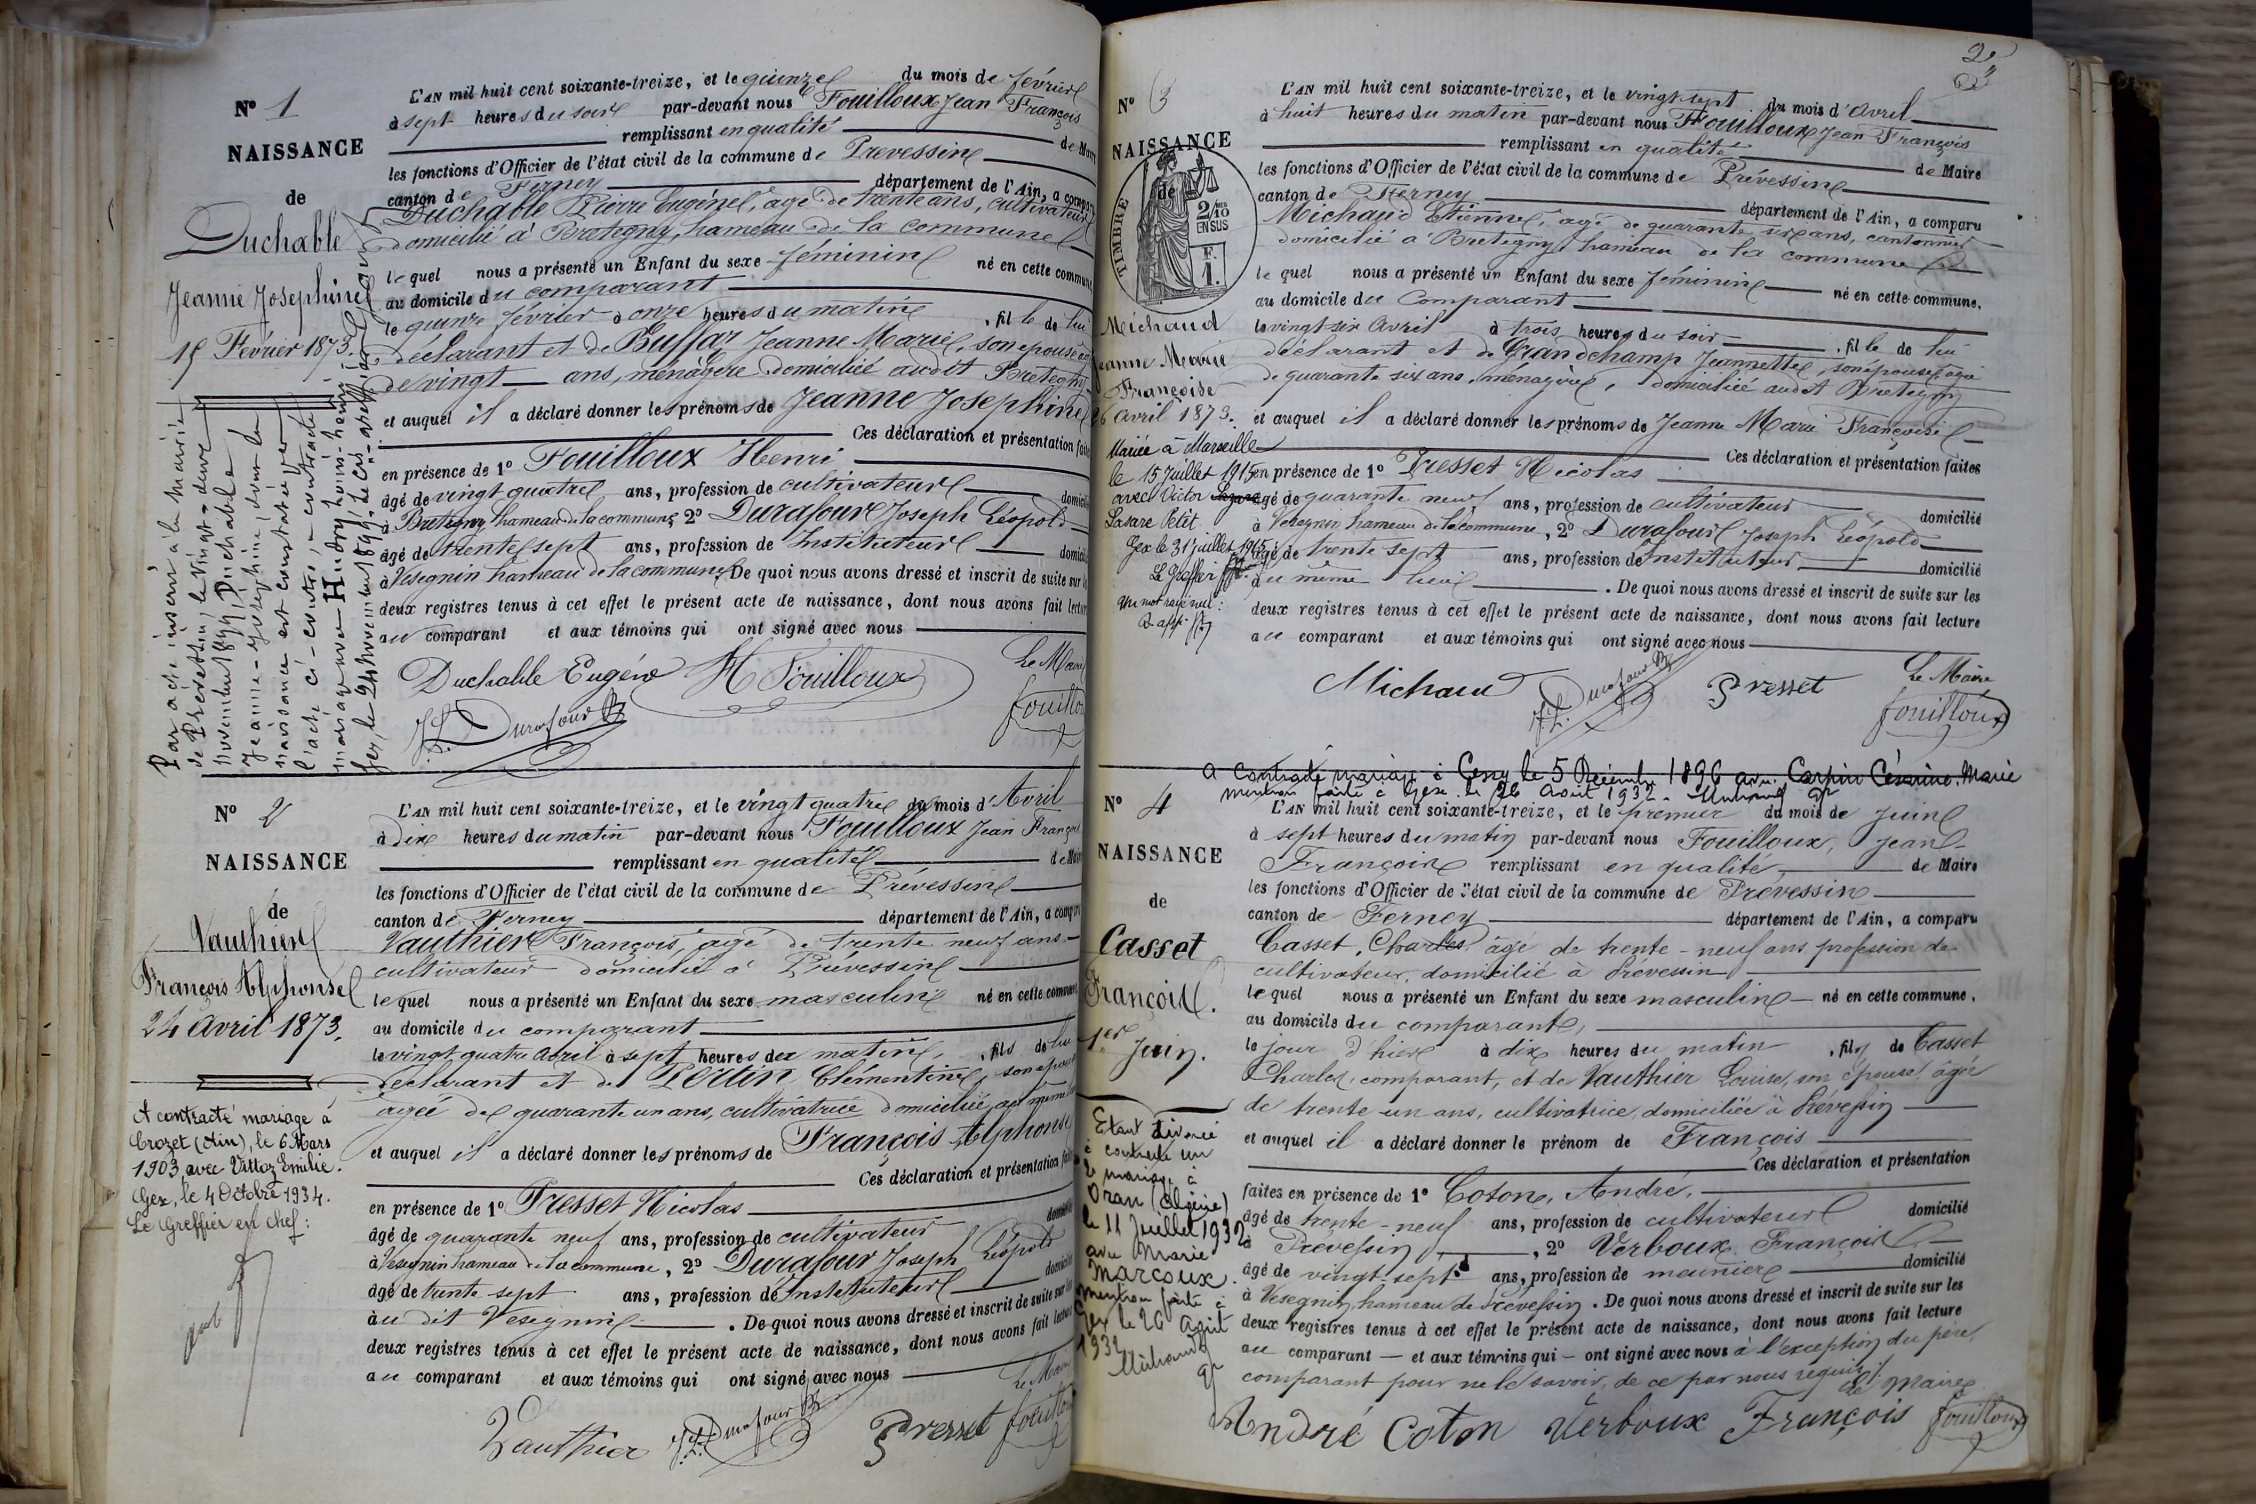 N° 1
NAISSANCE
de
Duchable
Jeanne Josephine
15 Février 1873.
L'AN mil huit cent soixante-treize, et le quinze du mois de février
à sept heures du soir par-devant nous Fouilloux Jean François
remplissant en qualité de Maire
les fonctions d'Officier de l'état civil de la commune de Prevessin
canton de Ferney département de l'Ain, a comparu
Duchable Pierre Eugène, agé de trente ans, cultivateur
domicilié à Bretigny, hameau de la commune
le quel nous a présenté un Enfant du sexe féminin né en cette commune
au domicile du comparant
le quinze février à onze heures du matin, fille de lui
déclarant et de Buffaz Jeanne Marie, son epouse
de vingt ans, ménagère domiciliée audit Bretigny
et auquel il a déclaré donner les prénoms de Jeanne Josephine
Ces déclaration et présentation faites
en présence de 1° Fouilloux Henri
âgé de vingt quatre ans, profession de cultivateur domicilié
à Bretigny hameau de la commune 2° Durafour Joseph Léopold
âgé de trente sept ans, profession de Instituteur domicilié
à Vesegnin hameau de la commune. De quoi nous avons dressé et inscrit de suite sur les
deux registres tenus à cet effet le présent acte de naissance, dont nous avons fait lecture
au comparant et aux témoins qui ont signé avec nous
Duchable Eugéne H Fouilloux Le Maire
J.L. Durafour Fouilloux
Par acte inscrit à la mairie
de Prévessin le vingt-deux
novembre 1899, Duchable
Jeanne-Joséphine, dont la
naissance est constatée par
l'acte ci-contre, a contracté
mariage avec Hudry
Gex, le 24 novembre 1899, Le
N° 2
NAISSANCE
de
Vauthier
François Alphonse
24 Avril 1873.
L'AN mil huit cent soixante-treize, et le vingt quatre du mois d'Avril
à dix heures du matin par-devant nous Fouilloux Jean François
remplissant en qualité de Maire
les fonctions d'Officier de l'état civil de la commune de Prévessin
canton de Ferney département de l'Ain, a comparu
Vauthier François, agé de trente neuf ans
cultivateur domicilié à Prévessin
le quel nous a présenté un Enfant du sexe masculin né en cette commune
au domicile du comparant
le vingt quatre Avril à sept heures du matin, fils de lui
déclarant et de Pertin Clémentine, son epouse
agée de quarante un ans, cultivatrice domiciliée au même
et auquel il a déclaré donner les prénoms de François Alphonse
Ces déclaration et présentation faites
en présence de 1° Presset Nicolas domicilié
âgé de quarante neuf ans, profession de cultivateur
à Vesegnin hameau de la commune, 2° Durafour Joseph Léopold
âgé de trente-sept ans, profession de Instituteur domicilié
au dit Vesegnin. De quoi nous avons dressé et inscrit de suite sur les
deux registres tenus à cet effet le présent acte de naissance, dont nous avons fait lecture
au comparant et aux témoins qui ont signé avec nous
Le Maire
Vauthier J.L. Durafour Presset Fouilloux
A contracté mariage à
Crozet (Ain), le 6 Mars
1903, avec Vittoz Emilie.
Gex, le 4 Octobre 1934.
Le Greffier en chef:
N° 3
NAISSANCE
de
TIMBRE
2/10
EN SUS
F.
1.
Michaud
Jeanne Marie
Françoise
26 Avril 1873.
Mariée à Marseille
le 15 Juillet 1915
avec Victor
Lazare Petit
Gex le 31 juillet 1915
Le Greffier
Un mot rayé nul:
L'AN mil huit cent soixante-treize, et le vingt sept du mois d'Avril
à huit heures du matin par-devant nous Fouilloux Jean François
remplissant en qualité de Maire
les fonctions d'Officier de l'état civil de la commune de Prévessin
canton de Ferney département de l'Ain, a comparu
Michaud Etienne, agé de quarante six ans, cantonnier
domicilié à Bretigny hameau de la commune
le quel nous a présenté un Enfant du sexe féminin né en cette commune.
au domicile du Comparant
le vingt six Avril à trois heures du soir, fille de lui
déclarant et de Grandchamp Jeannette, son épouse agée
de quarante six ans, ménagère, domiciliée audit Bretigny
et auquel il a déclaré donner les prénoms de Jeanne Marie Françoise
Ces déclaration et présentation faites
en présence de 1° Presset Nicolas
âgé de quarante neuf ans, profession de cultivateur domicilié
à Vesegnin hameau de la commune, 2° Durafour Joseph Léopold
âgé de trente sept ans, profession de Instituteur domicilié
au même lieu. De quoi nous avons dressé et inscrit de suite sur les
deux registres tenus à cet effet le présent acte de naissance, dont nous avons fait lecture
au comparant et aux témoins qui ont signé avec nous
Michaud J.L. Durafour Presset Le Maire
Fouilloux
A contracté mariage à Cessy le 5 Décembre 1896 avec Carpin Césarine Marie
mention faite à Gex le 26 Août 1932
N° 4
NAISSANCE
de
Casset
François.
1er Juin.
Etant divorcé
a contracté un
2e mariage à
Oran (Algérie)
le 11 Juillet 1932
avec Marie
Marcoux.
mention faite à
Gex le 26 Août
1932
L'AN mil huit cent soixante-treize, et le premier du mois de Juin
à sept heures du matin par-devant nous Fouilloux, Jean
François remplissant en qualité, de Maire
les fonctions d'Officier de l'état civil de la commune de Prévessin
canton de Ferney département de l'Ain, a comparu
Casset, Charles, âgé de trente-neuf ans profession de
cultivateur, domicilié à Prévessin
le quel nous a présenté un Enfant du sexe masculin né en cette commune,
au domicile du comparant,
le jour d'hier à dix heures du matin, fils de Casset
Charles, comparant, et de Vauthier Louise, son épouse, âgée
de trente-un ans, cultivatrice, domiciliée à Prévessin
et auquel il a déclaré donner le prénom de François
Ces déclaration et présentation
faites en présence de 1° Coton, André,
âgé de trente-neuf ans, profession de cultivateur domicilié
à Prévessin, 2° Verboux François
âgé de vingt-sept ans, profession de meunier domicilié
à Vesegnin, hameau de Prévessin. De quoi nous avons dressé et inscrit de suite sur les
deux registres tenus à cet effet le présent acte de naissance, dont nous avons fait lecture
au comparant et aux témoins qui ont signé avec nous à l'exception du père,
comparant pour ne le savoir, de ce par nous requis.
Le Maire
André Coton Verboux François Fouilloux